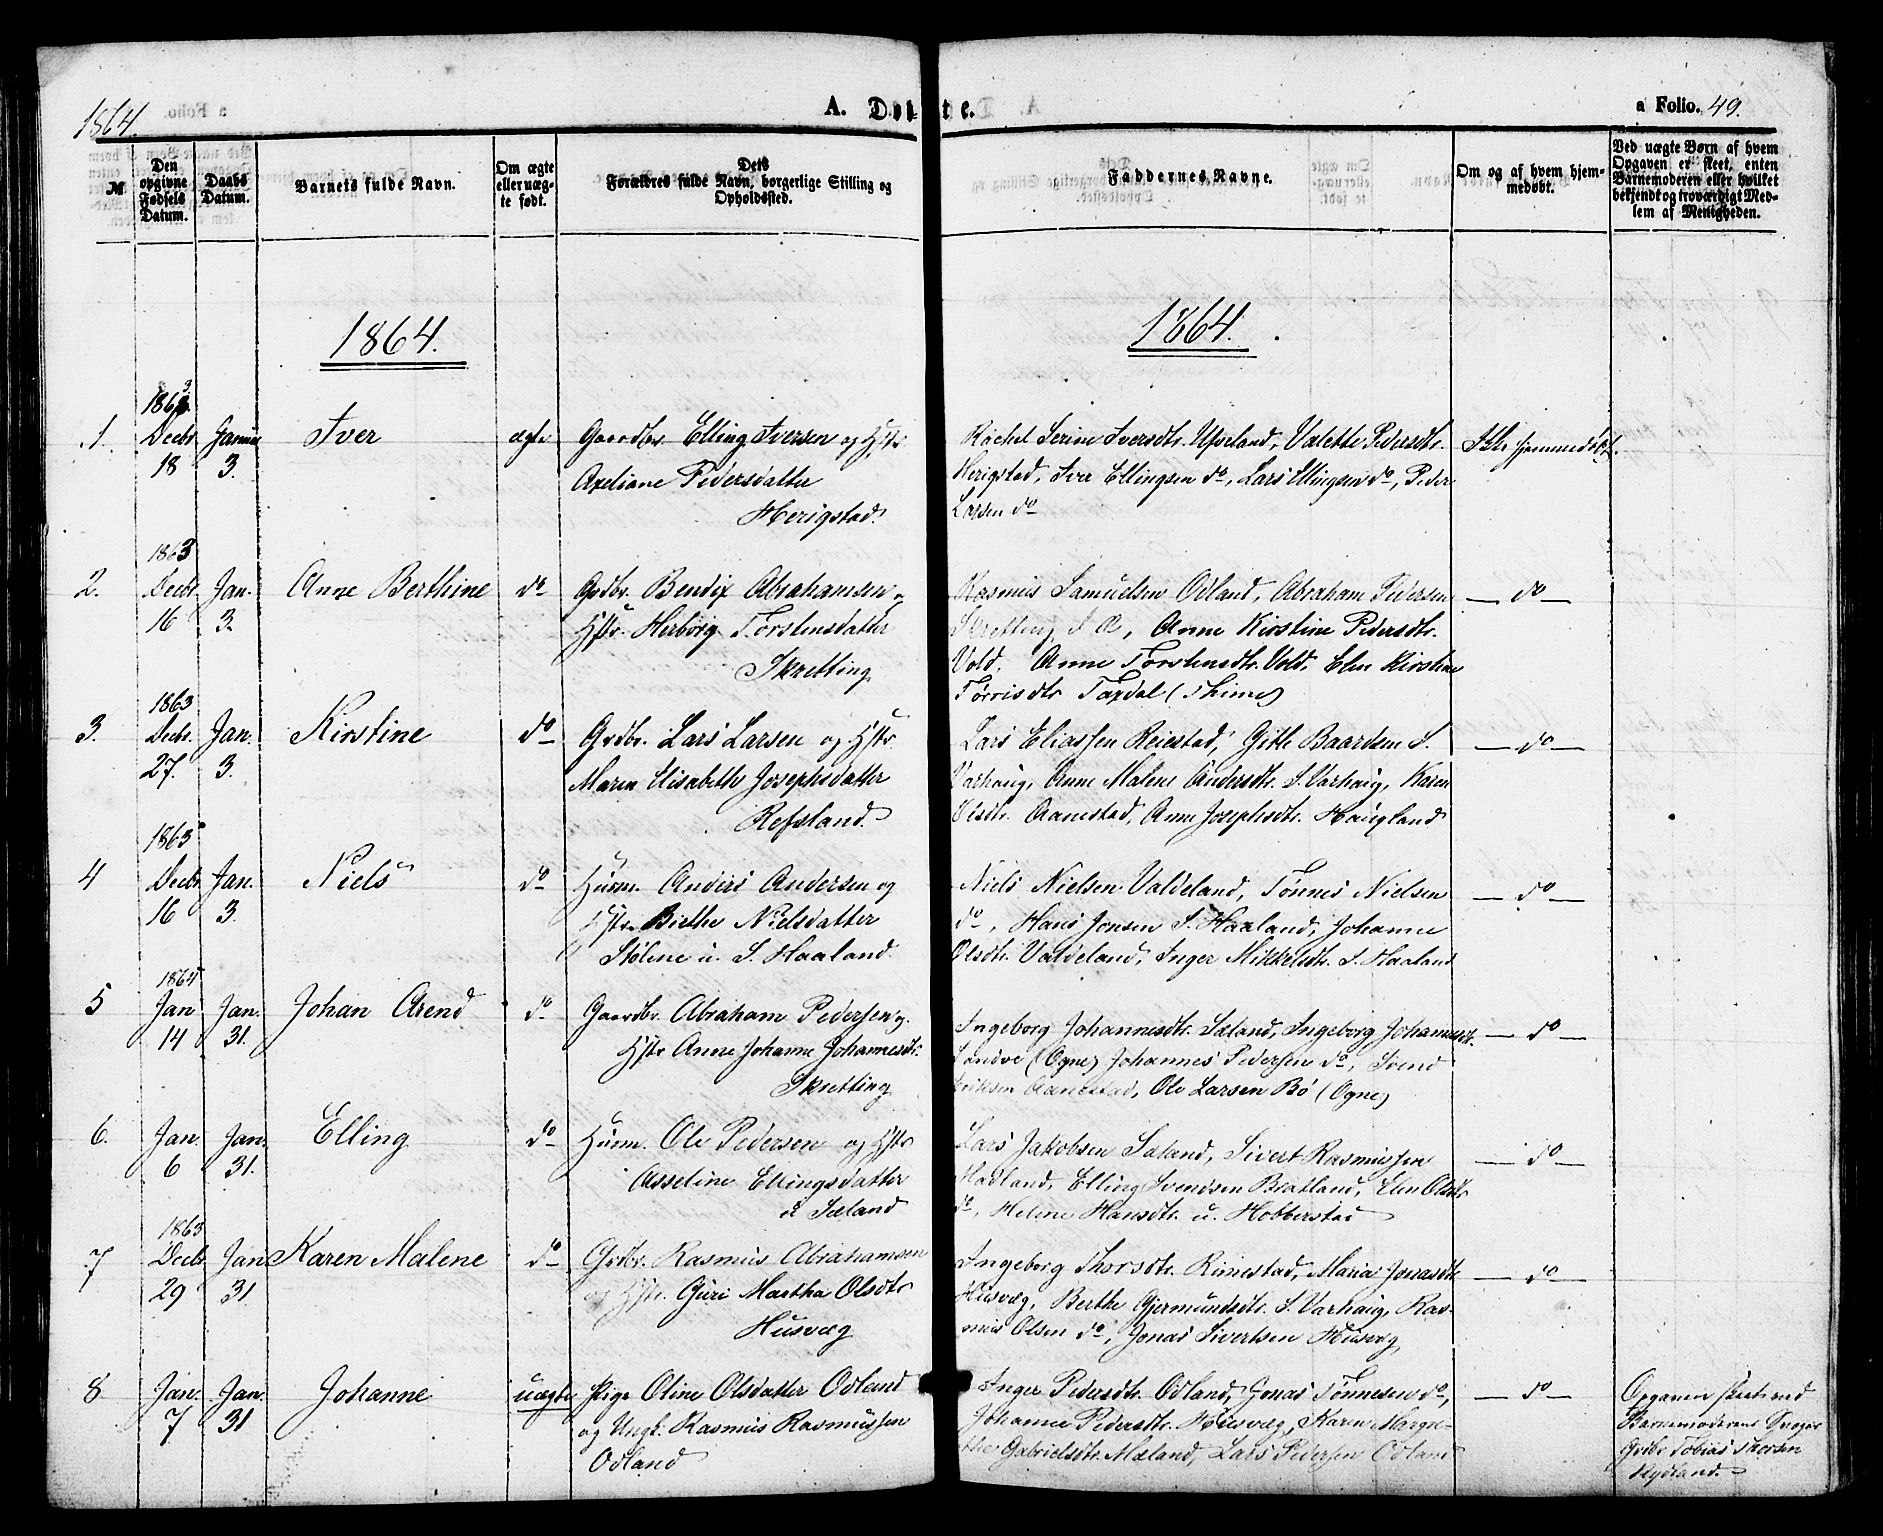 1864.
A. Døbte.
a Folio. 49.
№
Den opgivne Fødsels Datum.
Daabs Datum.
Barnets fulde Navn.
Om ægte eller uægte født.
Dets Forældres fulde Navn, borgerlige Stilling og Opholdssted.
Faddernes Navne.
Om og af hvem hjemmedøbt.
Ved uægte Børn af hvem Opgaven er skeet, enten Barnemoderen eller hvilket bekjendt og troværdigt Medlem af Menigheden.
1864.
1864.
1863
1. Decbr Januar Iver ægte Gaardbr. Elling Iversen og Hstr
18 3. Axeliane Pedersdatter
Herigstad.
Rachel Serine Iversdtr. Ueland, Valette Pedersdtr. Ikke hjemmedøbt.
Herigstad, Iver Ellingsen do, Lars Ellingsen do, Peder
Larsen do
1863
2. Decbr. Jan. Anne Berthine do Grdbr. Bendix Abrahamsen og
16 3. Hstr. Herborg Torstensdatter
Skretting
Rasmus Samuelsen Odland, Abraham Pedersen — do —
Skretting, Anne Kirstine Pedersdtr.
Vold. Anne Torstensdtr. Vold, Elen Kirstine
Tørrisdtr Taxdal (Thime)
1863
3. Decbr. Jan. Kirstine do Grdbr. Lars Larsen og Hstr.
27. 3. Maren Elisabeth Josephsdatter
Refsland.
Lars Eliassen Reiestad, Gitle Baardsen S. — do —
Varhaug, Anne Malene Andersdtr. S. Varhaug, Karen
Olsdtr. Aanestad, Anne Josephsdtr. Haugland
1863
4 Decbr Jan. Niels do Husm. Anders Andersen og
16 3. Hstr. Birthe Nielsdatter
Stølene u. S. Haaland
Niels Nielsen Valdeland, Tønnes Nielsen — do —
do, Hans Jonsen S. Haaland, Johanne
Olsdtr. Valdeland, Inger Mikkelsdtr. S. Haaland
1864
5 Jan Jan. Johan Arend do Gaardbr. Abraham Pedersen og
14 31. Hstr Anne Johanne Johannesdtr.
Skretting
Ingeborg Johannesdtr. Sæland, Ingeborg Johannesdtr. — do —
Sandve (Ogne) Johannes Pedersen do, Svend
Eriksen Aanestad, Ole Larsen Bø (Ogne)
6. Jan. Jan. Elling do Husm. Ole Pedersen og Hstr
6 31. Asseline Ellingsdatter
u Sæland
Lars Jakobsen Sæland, Sivert Rasmussen — do —
Madland, Elling Svendsen Bratland, Elen Olsdtr
do, Helene Hansdtr. u. Hobberstad
1863
7 Decbr Jan Karen Malene do Grdbr. Rasmus Abrahamsen
29 31 og Hstr. Guri Martha Olsdtr
Husvæg
Ingeborg Thorsdtr. Rimestad, Maria Jonasdtr — do —
Husvæg, Berthe Gjermundsdtr. S. Varhaug, Ras-
mus Olsen do, Jonas Sivertsen Husvæg
8 Jan. Jan. Johanne uægte Pige Oline Olsdatter Odland
7 31 og Ungk. Rasmus Rasmussen
Odland
Inger Pedersdtr. Odland, Jonas Tønnesen do, — do —
Johanne Pedersdtr. Husvæg, Karen Margre-
the Gabrielsdtr. Mæland, Lars Pedersen Odland
Opgaven skeet ved
Barnemoderens Svoger
Grdbr Tobias Thorsen
Rydland.